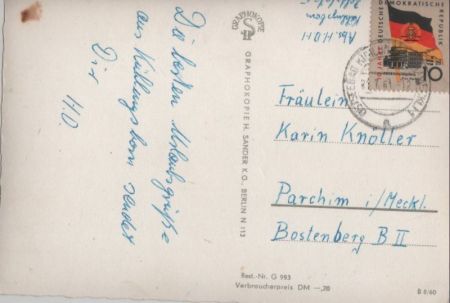 Die besten Urlaubsgrüße
aus Kühlungsborn sendet
Dir
H.O
Abs. H.O.H
Kühlungsborn
GRAPHOKOPIE
GRAPHOKOPIE H. SANDER K.G., BERLIN N 113
DEUTSCHE DEMOKRATISCHE REPUBLIK
10
Fräulein
Karin Knöller
Parchim i/Meckl.
Bostenberg B II
Best.-Nr. G 993
Verbraucherpreis DM —,20
B 8/60